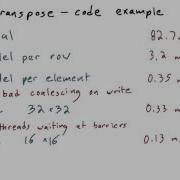 ranspose – code example
al 82.7
del per row 3.2 m
del per element 0.35
bad coalescing on write
32 x 32 0.33 m
threads waiting at barriers
16 x 16 0.13 m